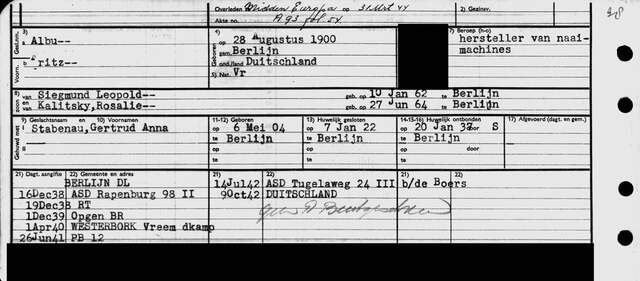 Overleden Midden Europa op 31 Mrt 44
Akte no. A 93 fol 54.
Ges.nm. 3) Albu--
Voorn. Fritz--
Geboren 4) op 28 Augustus 1900
gem. Berlijn
ond./land Duitschland
5) Nat. Vr
7) Beroep (h-o)
hersteller van naai-
machines
2) Gezinnr.
zoon van Siegmund Leopold-- geb. op 10 Jan 62 te Berlijn
en van Kalitsky, Rosalie-- geb. op 27 Jun 64 te Berlijn
9) Geslachtsnaam, Voornamen
Gehuwd met Stabenau, Gertrud Anna
11-12) Geboren
op 6 Mei 04
te Berlijn
Huwelijk gesloten
op 7 Jan 22
te Berlijn
14-15-16) Huwelijk ontbonden
op 20 Jan 37 door S
te Berlijn
17) Afgevoerd (dat. en gem.)
op
te
op
te
21) Dagt. aangifte 22) Gemeente en adres
BERLIJN DL
16Dec38 ASD Rapenburg 98 II
19Dec38 RT
1Dec39 Opgen BR
1Apr40 WESTERBORK Vreem dkamp
26Jun41 PB 12
21) 22) Gemeente en adres
14Jul42 ASD Tugelaweg 24 III b/de Boers
9Oct42 DUITSCHLAND
21) 22) Gemeente en adres